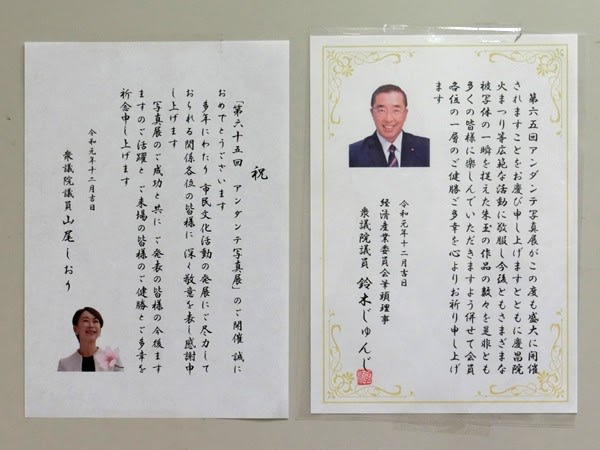 祝
「第六十五回 アンダンテ写真展」のご開催 誠に
おめでとうございます
多年にわたり 市民文化活動の発展にご尽力して
おられる関係各位の皆様に 深く敬意を表し感謝申
し上げます
写真展のご成功と共に ご発表の皆様の今後ます
ますのご活躍と ご来場の皆様のご健勝とご多幸を
祈念申し上げます
令和元年十二月吉日
衆議院議員 山尾しおり
第六五回アンダンテ写真展がこの度も盛大に開催
されますことをお慶び申し上げますとともに慶昌院
火まつり等広範な活動に敬服し今後ともさまざまな
被写体の一瞬を捉えた朱玉の作品の数々を是非とも
多くの皆様に楽しんでいただきますよう併せて会員
各位の一層のご健勝ご多幸を心よりお祈り申し上げ
ます
令和元年十二月吉日
経済産業委員会筆頭理事
衆議院議員 鈴木じゅんじ